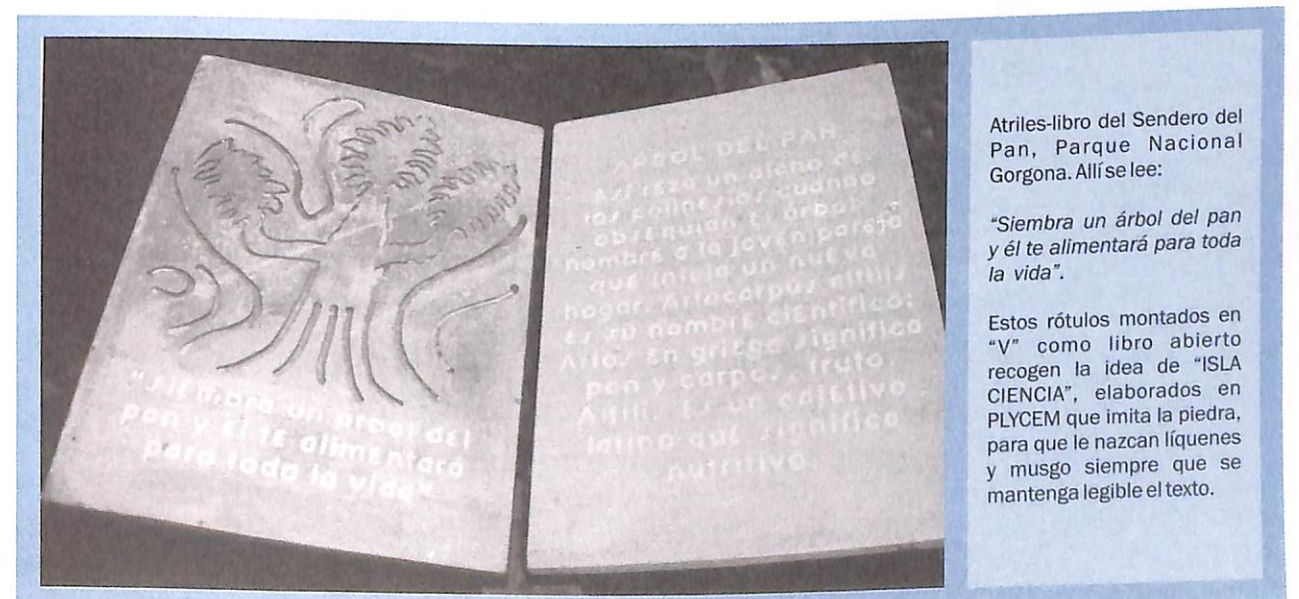 "Siembra un árbol del
pan y él te alimentará
para toda la vida"
ARBOL DEL PAN
Así reza un dicho de
los polinesios cuando
obsequian el árbol
nombre a la joven pareja
que inicia un nuevo
hogar. Artocarpus altilis
Es su nombre científico:
Artos En griego significa
pan y carpos, fruto.
Altilis Es un adjetivo
latino que significa
nutritivo
Atriles-libro del Sendero del
Pan, Parque Nacional
Gorgona. Allí se lee:
"Siembra un árbol del pan
y él te alimentará para toda
la vida".
Estos rótulos montados en
"V" como libro abierto
recogen la idea de "ISLA
CIENCIA", elaborados en
PLYCEM que imita la piedra,
para que le nazcan líquenes
y musgo siempre que se
mantenga legible el texto.